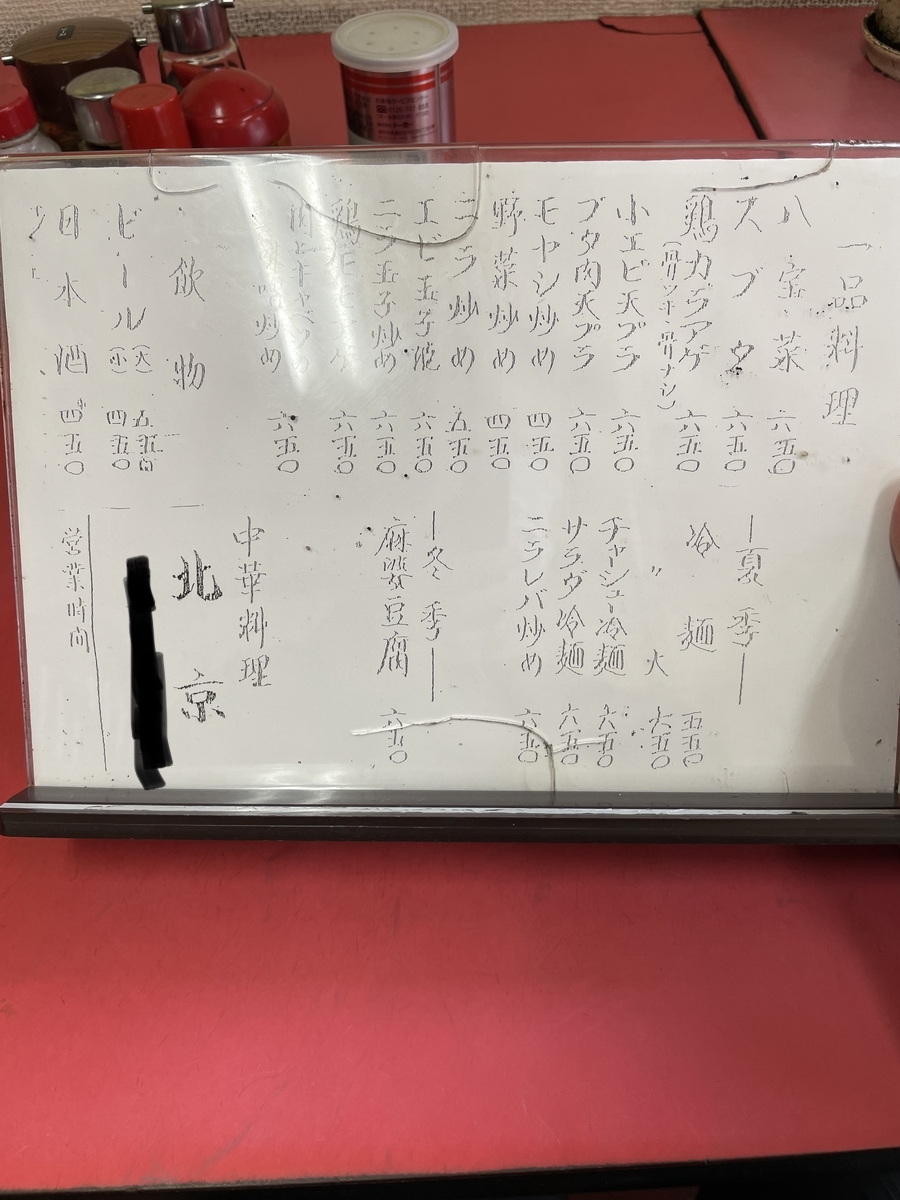 一品料理
八宝菜 六五〇
スブタ 六五〇
鶏カラアゲ 六五〇
(骨ツキ・骨ナシ)
小エビ天プラ 六五〇
ブタ肉天プラ 六五〇
モヤシ炒め 四五〇
野菜炒め 四五〇
ニラ炒め 五五〇
エビ玉子 六五〇
ニラ玉子炒め 六五〇
鶏 六五〇
肉 キャベツ
炒め 六五〇
飲物
ビール (大) 五五〇円
(小) 四五〇
日本酒 四五〇
―夏季―
冷麺 五五〇
〃 大 六五〇
チャシュー冷麺 六五〇
サラダ冷麺 六五〇
ニラレバ炒め 六五〇
―冬季―
麻婆豆腐 六五〇
中華料理
北京
営業時间